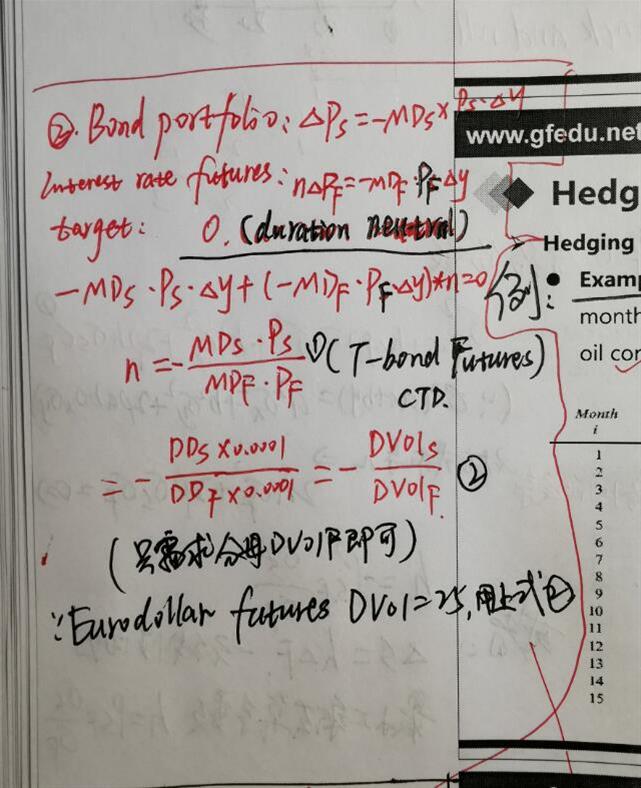 ②. Bond portfolio: ΔPs = -MDs × Ps·Δy
Interest rate futures: nΔPF = -MDF·PFΔy
target: 0. (duration neutral)
-MDs·Ps·Δy + (-MDF·PF·Δy)*n = 0
n = - MDs·Ps / MDF·PF ① (T-bond Futures)
CTD.
= - DDs×0.0001 / DDF×0.0001 = - DV01s / DV01F. ②
(只需求分母DV01F即可)
∵ Eurodollar futures DV01=25, 用上式②
www.gfedu.net
Hedg
Hedging
例:
Examp
month
oil con
Month
i
1
2
3
4
5
6
7
8
9
10
11
12
13
14
15